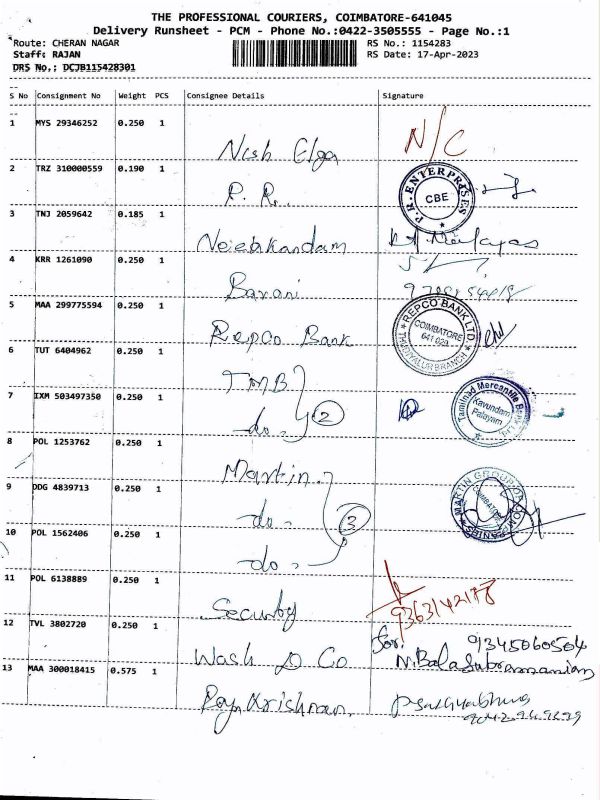 THE PROFESSIONAL COURIERS, COIMBATORE-641045
Delivery Runsheet - PCM - Phone No.:0422-3505555 - Page No.:1
Route: CHERAN NAGAR RS No.: 1154283
Staff: RAJAN RS Date: 17-Apr-2023
DRS No.: DCJB115428301
S No Consignment No Weight PCS Consignee Details Signature
1 MYS 29346252 0.250 1 N/C
Nish Elga
2 TRZ 310000559 0.190 1 P. R. ENTERPRISES CBE
P. R.
3 TNJ 2059642 0.185 1
4 KRR 1261090 0.250 1
Barani
5 MAA 299775594 0.250 1 REPCO BANK LTD. COIMBATORE 641 029
Repco Bank
6 TUT 6404962 0.250 1
TMB
7 IXM 503497350 0.250 1 Tamilnad Mercantile Bank Kavundam Palayam
do. 2
8 POL 1253762 0.250 1
Martin
9 DDG 4839713 0.250 1 MARTIN GROUP OF COMPANIES COIMBATORE
do. 3
10 POL 1562406 0.250 1
do.
11 POL 6138889 0.250 1 9363142178
Security
12 TVL 3802720 0.250 1 for: 9345060504
Wash D Co N. Balasubramaniam
13 MAA 300018415 0.575 1